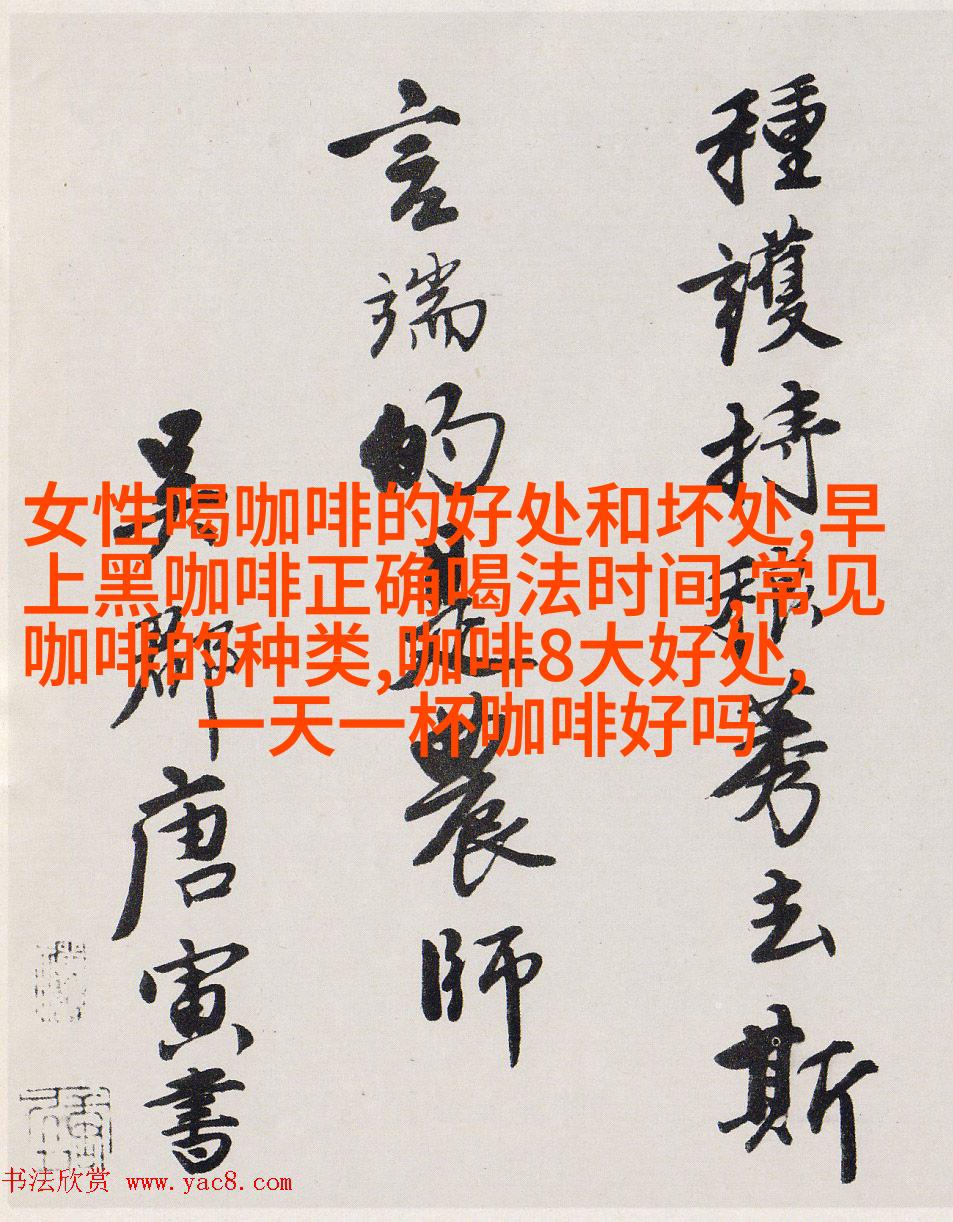 種護持稂莠去斯
言端的是農師
吴郡唐寅書
女性喝咖啡的好处和坏处,早
上黑咖啡正确喝法时间,常见
咖啡的种类,咖啡8大好处,
一天一杯咖啡好吗
书法欣赏 www.yac8.com